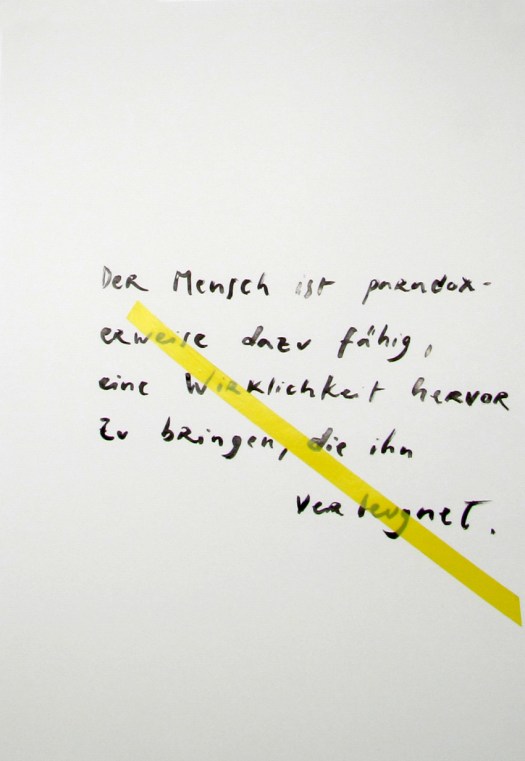 Der Mensch ist paradox-
erweise dazu fähig,
eine Wirklichkeit hervor
zu bringen, die ihn
verleugnet.